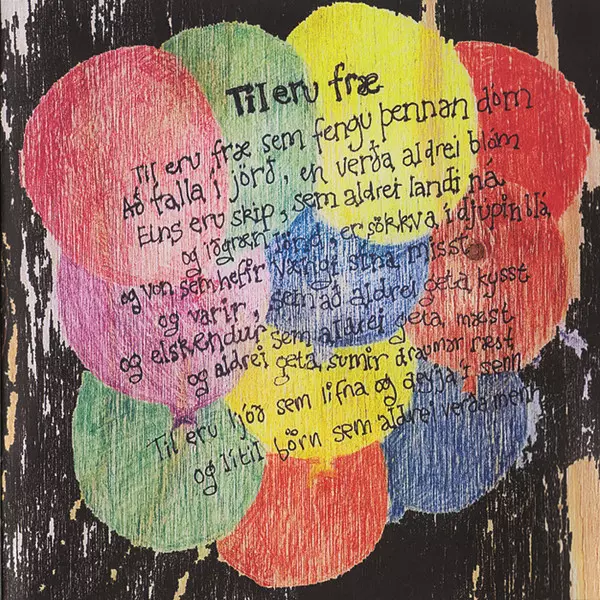 Til eru fræ
Til eru fræ sem fengu þennan dóm
Að falla í jörð, en verða aldrei blóm
Eins eru skip, sem aldrei landi ná
og iðgræn lönd, er sökkva í djúpin blá
og von sem hefir vængi sína misst
og varir, sem að aldrei geta kysst
og elskendur sem aldrei geta mæst
og aldrei geta sumir draumar ræst
Til eru ljóð sem lifna og deyja í senn
og lítil börn sem aldrei verða menn